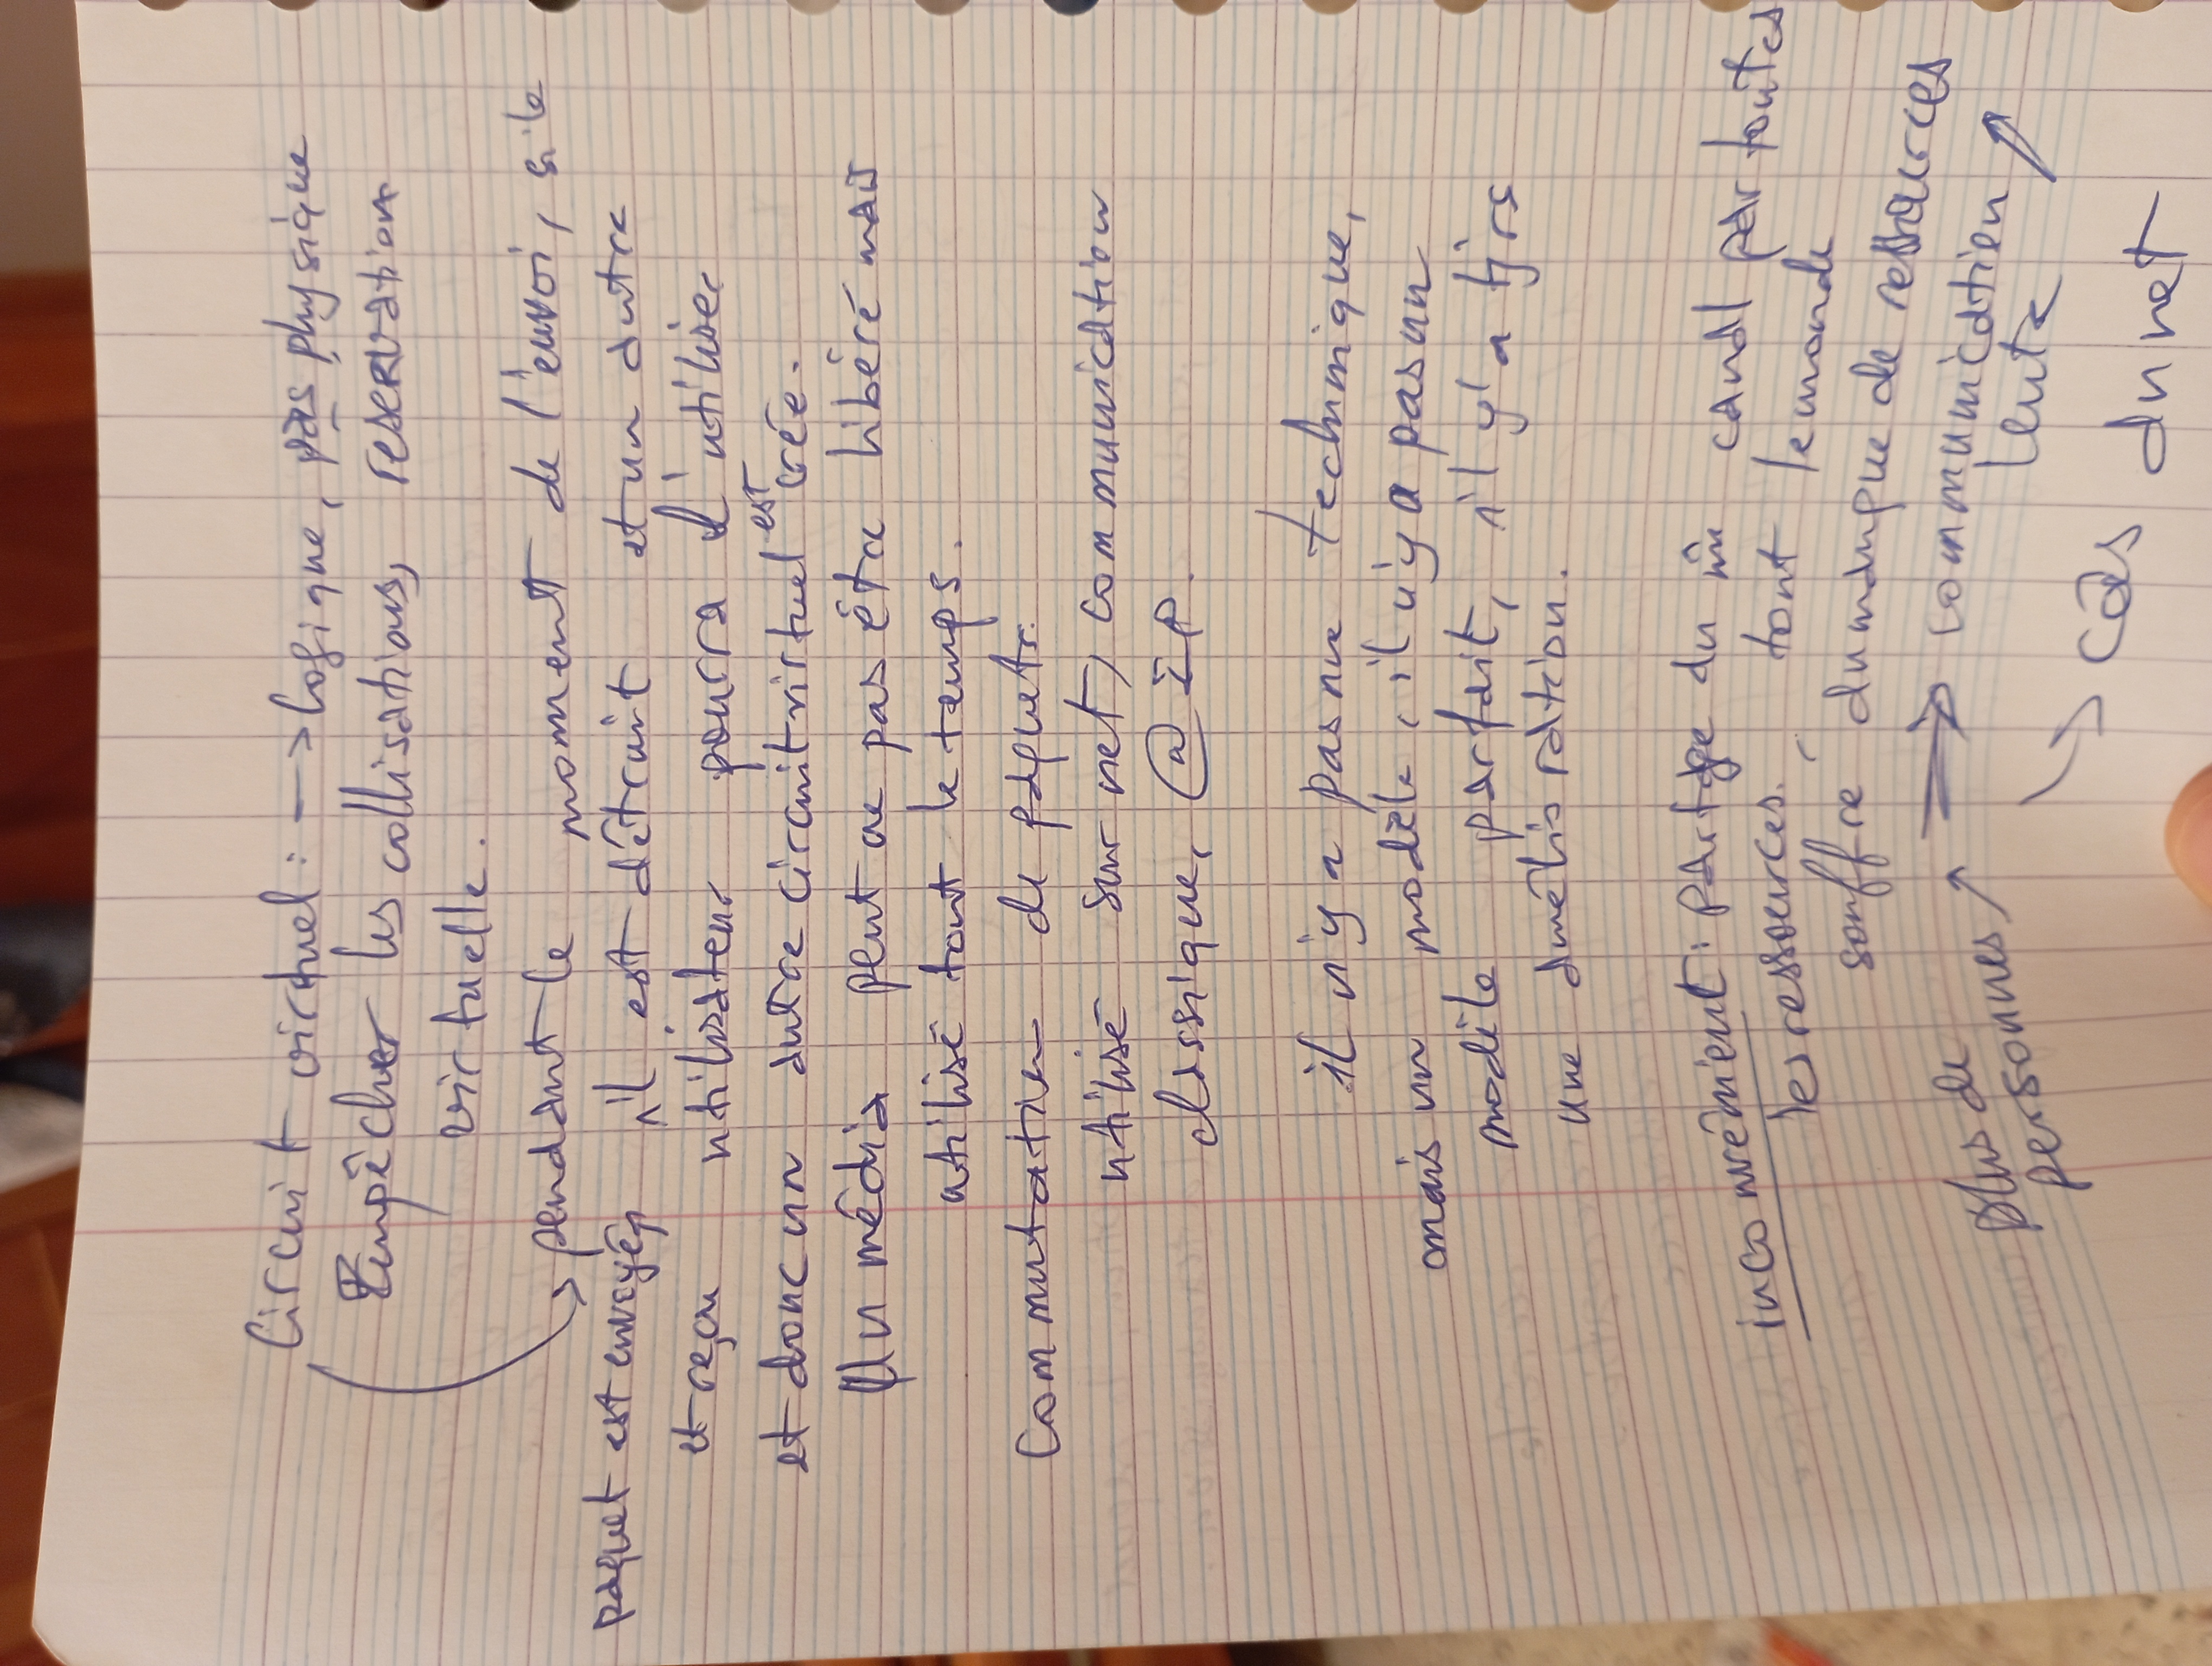 Circuit virtuel : → logique, pas physique
Empêcher les collisations, reservation
virtuelle.
→ pendant le moment de l'envoi, si le
paquet est envoyé, il est détruit et un autre
et reçu utilisateur pourra l'utiliser
et donc un autre circuit virtuel est crée.
Un média peut ne pas être libéré mais
utilisé tout le temps.
Commutation de paquets.
utilisé sur net, communication
classique, @ IP.
il n'y a pas une technique,
mais un modèle, il n'y a pas un
modèle parfait, il y'a tjrs
une amélioration.
inconvénient : partage du m̂ canal par toutes
les ressources. tout le monde
souffre du manque de ressources
plus de ⇒ communication
personnes ↗ lente ↗
→ cas du net